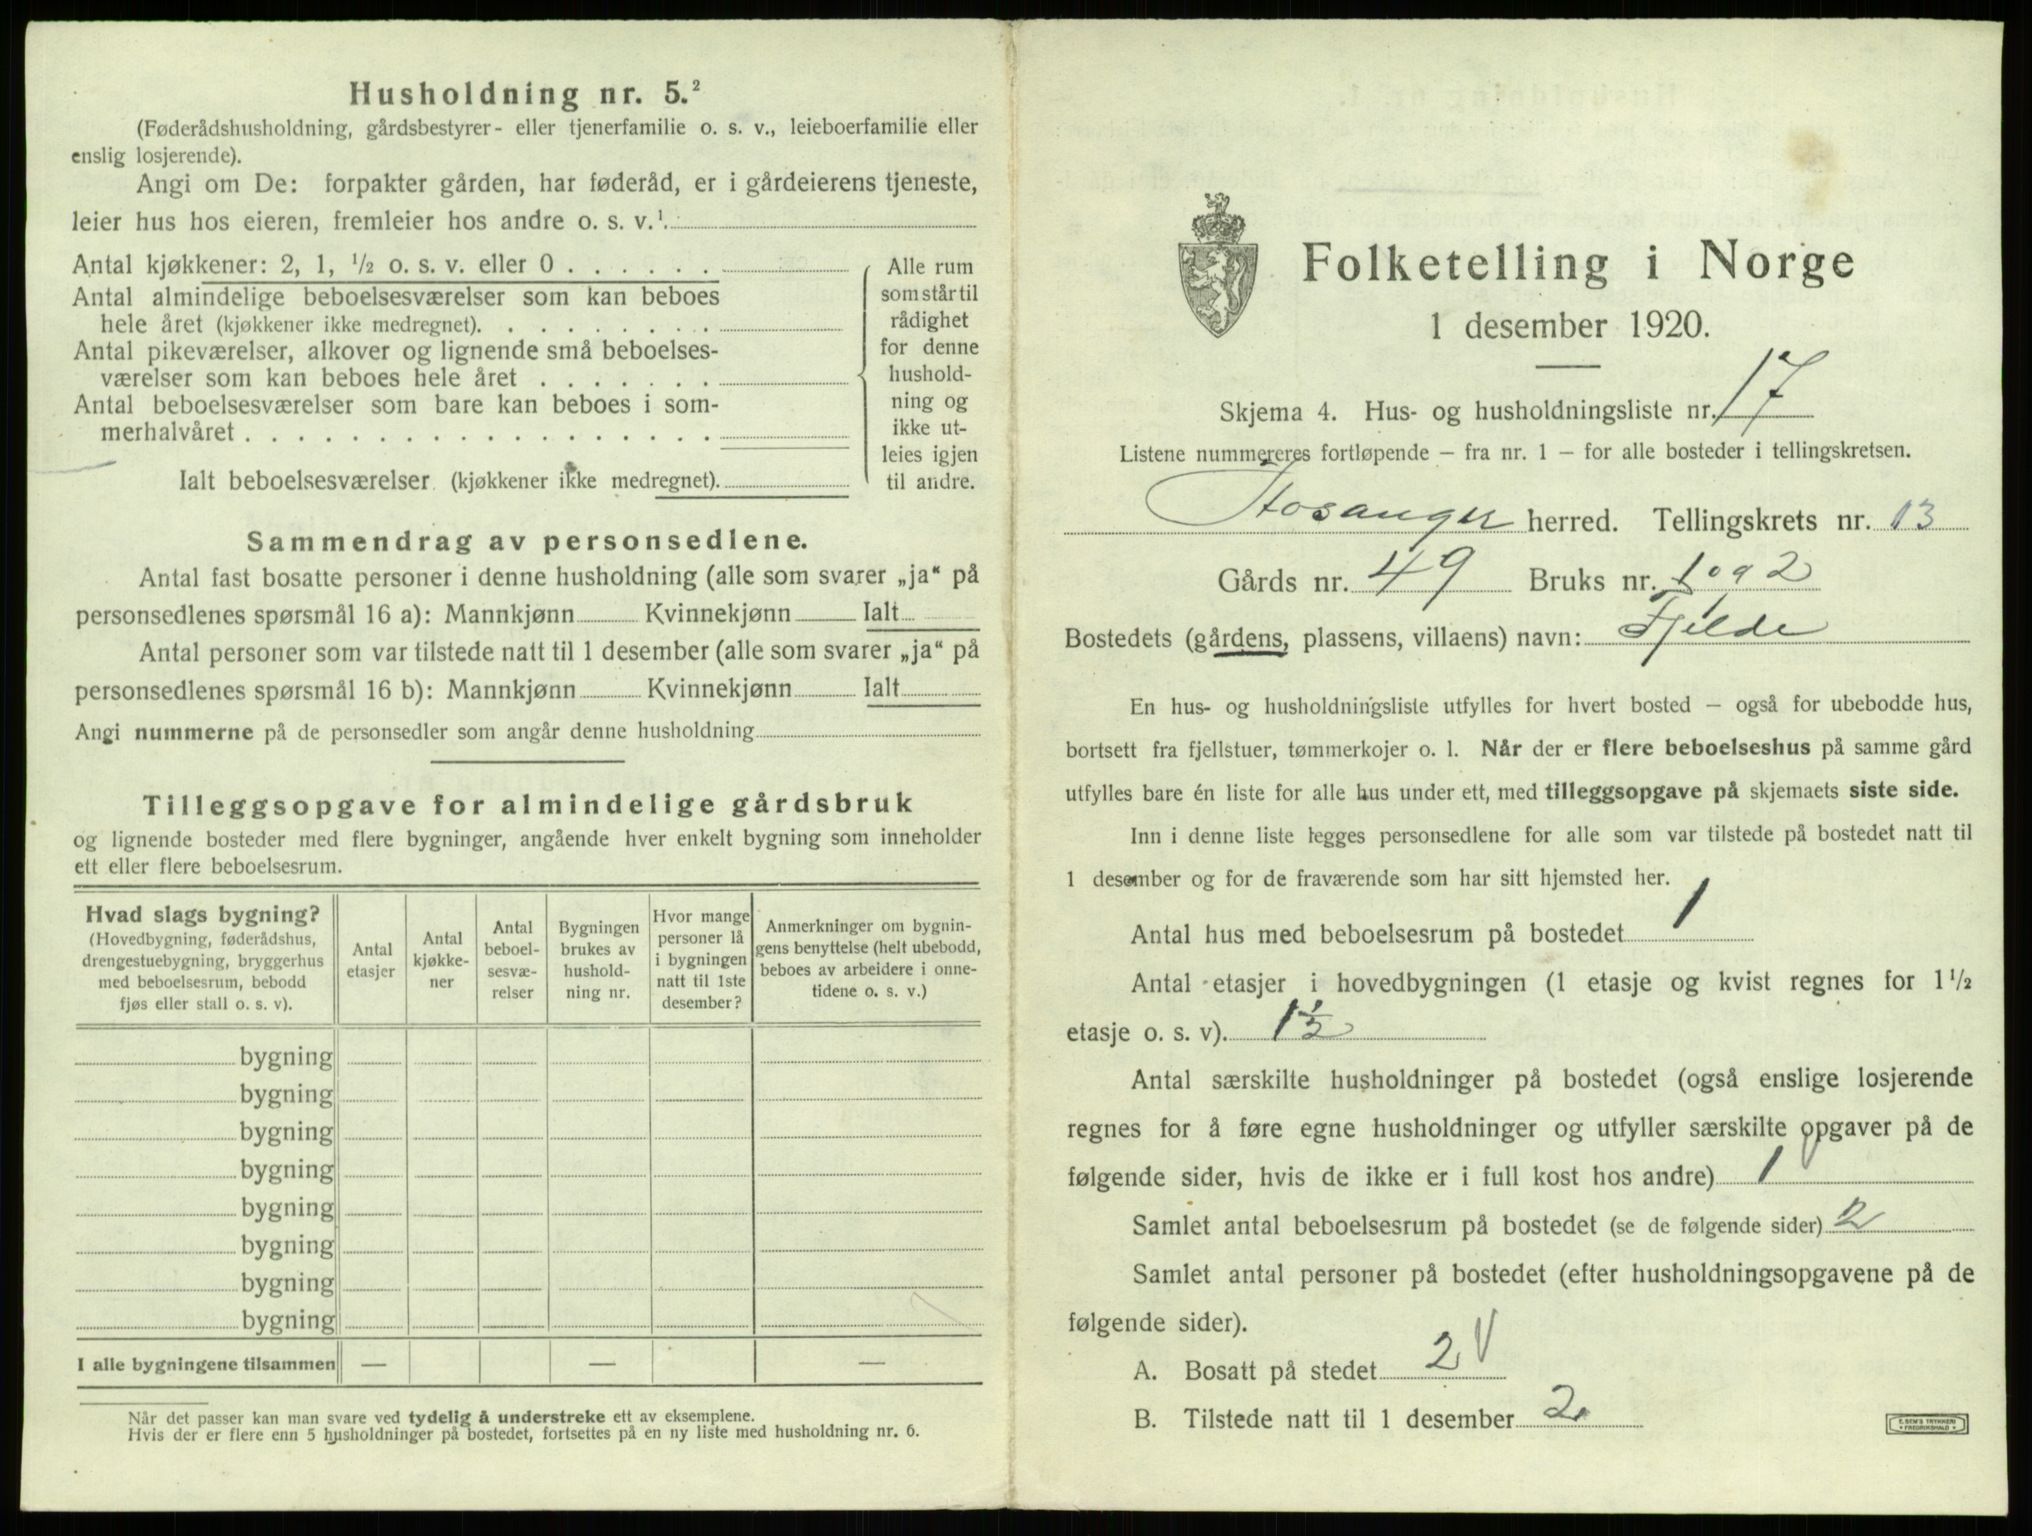 Husholdning nr. 5.²
(Føderådshusholdning, gårdsbestyrer- eller tjenerfamilie o. s. v., leieboerfamilie eller
enslig losjerende).
Angi om De: forpakter gården, har føderåd, er i gårdeierens tjeneste,
leier hus hos eieren, fremleier hos andre o. s. v.¹.
Antal kjøkkener: 2, 1, ½ o. s. v. eller 0 . . . . . .
Antal almindelige beboelsesværelser som kan beboes
hele året (kjøkkener ikke medregnet). . . . . . . . .
Antal pikeværelser, alkover og lignende små beboelses-
værelser som kan beboes hele året . . . . . . .
Antal beboelsesværelser som bare kan beboes i som-
merhalvåret . . . . . . . . . . . . . . . . . .
Ialt beboelsesværelser (kjøkkener ikke medregnet).
Alle rum
som står til
rådighet
for denne
hushold-
ning og
ikke ut-
leies igjen
til andre.
Sammendrag av personsedlene.
Antal fast bosatte personer i denne husholdning (alle som svarer „ja“ på
personsedlenes spørsmål 16 a): Mannkjønn Kvinnekjønn Ialt
Antal personer som var tilstede natt til 1 desember (alle som svarer „ja“ på
personsedlenes spørsmål 16 b): Mannkjønn Kvinnekjønn Ialt
Angi nummerne på de personsedler som angår denne husholdning
Tilleggsopgave for almindelige gårdsbruk
og lignende bosteder med flere bygninger, angående hver enkelt bygning som inneholder
ett eller flere beboelsesrum.
Hvad slags bygning?
(Hovedbygning, føderådshus,
drengestuebygning, bryggerhus
med beboelsesrum, bebodd
fjøs eller stall o. s. v).
Antal
etasjer
Antal
kjøkke-
ner
Antal
beboel-
sesvæ-
relser
Bygningen
brukes av
hushold-
ning nr.
Hvor mange
personer lå
i bygningen
natt til 1ste
desember?
Anmerkninger om bygnin-
gens benyttelse (helt ubebodd,
beboes av arbeidere i onne-
tidene o. s. v.)
bygning
bygning
bygning
bygning
bygning
bygning
bygning
bygning
I alle bygningene tilsammen — — —
Når det passer kan man svare ved tydelig å understreke ett av eksemplene.
Hvis der er flere enn 5 husholdninger på bostedet, fortsettes på en ny liste med husholdning nr. 6.
Folketelling i Norge
1 desember 1920.
Skjema 4. Hus- og husholdningsliste nr. 17
Listene nummereres fortløpende – fra nr. 1 – for alle bosteder i tellingskretsen.
Hosanger herred. Tellingskrets nr. 13
Gårds nr. 49 Bruks nr. 1 og 2
Bostedets (gårdens, plassens, villaens) navn: Fjelde
En hus- og husholdningsliste utfylles for hvert bosted – også for ubebodde hus,
bortsett fra fjellstuer, tømmerkojer o. l. Når der er flere beboelseshus på samme gård
utfylles bare én liste for alle hus under ett, med tilleggsopgave på skjemaets siste side.
Inn i denne liste legges personsedlene for alle som var tilstede på bostedet natt til
1 desember og for de fraværende som har sitt hjemsted her.
Antal hus med beboelsesrum på bostedet 1
Antal etasjer i hovedbygningen (1 etasje og kvist regnes for 1½
etasje o. s. v). 1½
Antal særskilte husholdninger på bostedet (også enslige losjerende
regnes for å føre egne husholdninger og utfyller særskilte opgaver på de
følgende sider, hvis de ikke er i full kost hos andre) 1
Samlet antal beboelsesrum på bostedet (se de følgende sider) 2
Samlet antal personer på bostedet (efter husholdningsopgavene på de
følgende sider).
A. Bosatt på stedet 2 V
B. Tilstede natt til 1 desember 2
E. SEM'S TRYKKERI
FREDRIKSHALD